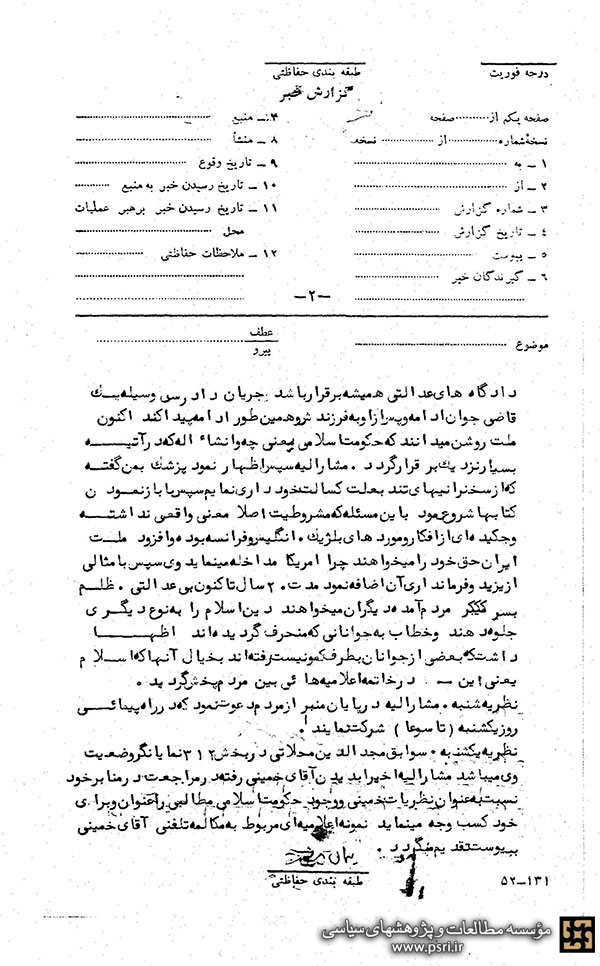 درجه فوریت
طبقه بندی حفاظتی
گزارش خبر
صفحه یکم از ............ صفحه
نسخه شماره ............ از ............ نسخه
۱ – به
۲ – از
۳ – شماره گزارش
۴ – تاریخ گزارش
۵ – پیوست
۶ – گیرندگان خبر
۷ – منبع
۸ – منشأ
۹ – تاریخ وقوع
۱۰ – تاریخ رسیدن خبر به منبع
۱۱ – تاریخ رسیدن خبر برهبر عملیات
محل
۱۲ – ملاحظات حفاظتی
–۲–
موضوع
عطف
پیرو
دادگاه های عدالتی همیشه برقرار باشد جریان دادرسی وسیله یک
قاضی جوان ادامه و پس از او به فرزند ثر و همین طور ادامه پیدا کند اکنون
ملت روشن میدانند که حکومت اسلامی یعنی چه و انشاء اله که در آتیه
بسیار نزدیک بر قرار گردد . مشارالیه سپس اظهار نمود پزشک بمن گفته
که از سخنرانیهای تند بعلت کسالت خودداری نمایم سپس با باز نمودن
کتابها شروع نمود با این مسئله که مشروطیت اصلا معنی واقعی نداشته
و چکیده ای از افکار و مورد های بلژیک . انگلیس و فرانسه بوده و افزود ملت
ایران حق خود را میخواهند چرا امریکا مداخله مینماید وی سپس با مثالی
از یزید و فرمانداری آن اضافه نمود مدت ۲۰ سال تا کنون بی عدالتی . ظلم
بسر مردم آمده دیگران میخواهند دین اسلام را به نوع دیگری
جلوه دهند و خطاب به جوانانی که منحرف گردیده اند اظهار
داشت که بعضی از جوانان بطرف کمونیست رفته اند بخیال آنها که اسلام
یعنی این — در خاتمه اعلامیه هائی بین مردم پخش گردید .
نظریه شنبه . مشارالیه در پایان منبر از مردم دعوت نمود که در راه پیمائی
روز یکشنبه ( تاسوعا ) شرکت نمایند .
نظریه یکشنبه . سوابق مجد الدین محلاتی در بخش ۳۱۲ نمایانگر وضعیت
وی میباشد مشارالیه اخیرا بدیدن آقای خمینی رفته در مراجعت در منابر خود
نسبت به عنوان نظریات خمینی و وجود حکومت اسلامی مطالبی را عنوان و برای
خود کسب وجه مینماید نمونه اعلامیه ای مربوط به مکالمه تلفنی آقای خمینی
به پیوست تقدیم میگردد .
طبقه بندی حفاظتی
۵۲–۱۳۱
مؤسسه مطالعات و پژوهشهای سیاسی
www.psri.ir